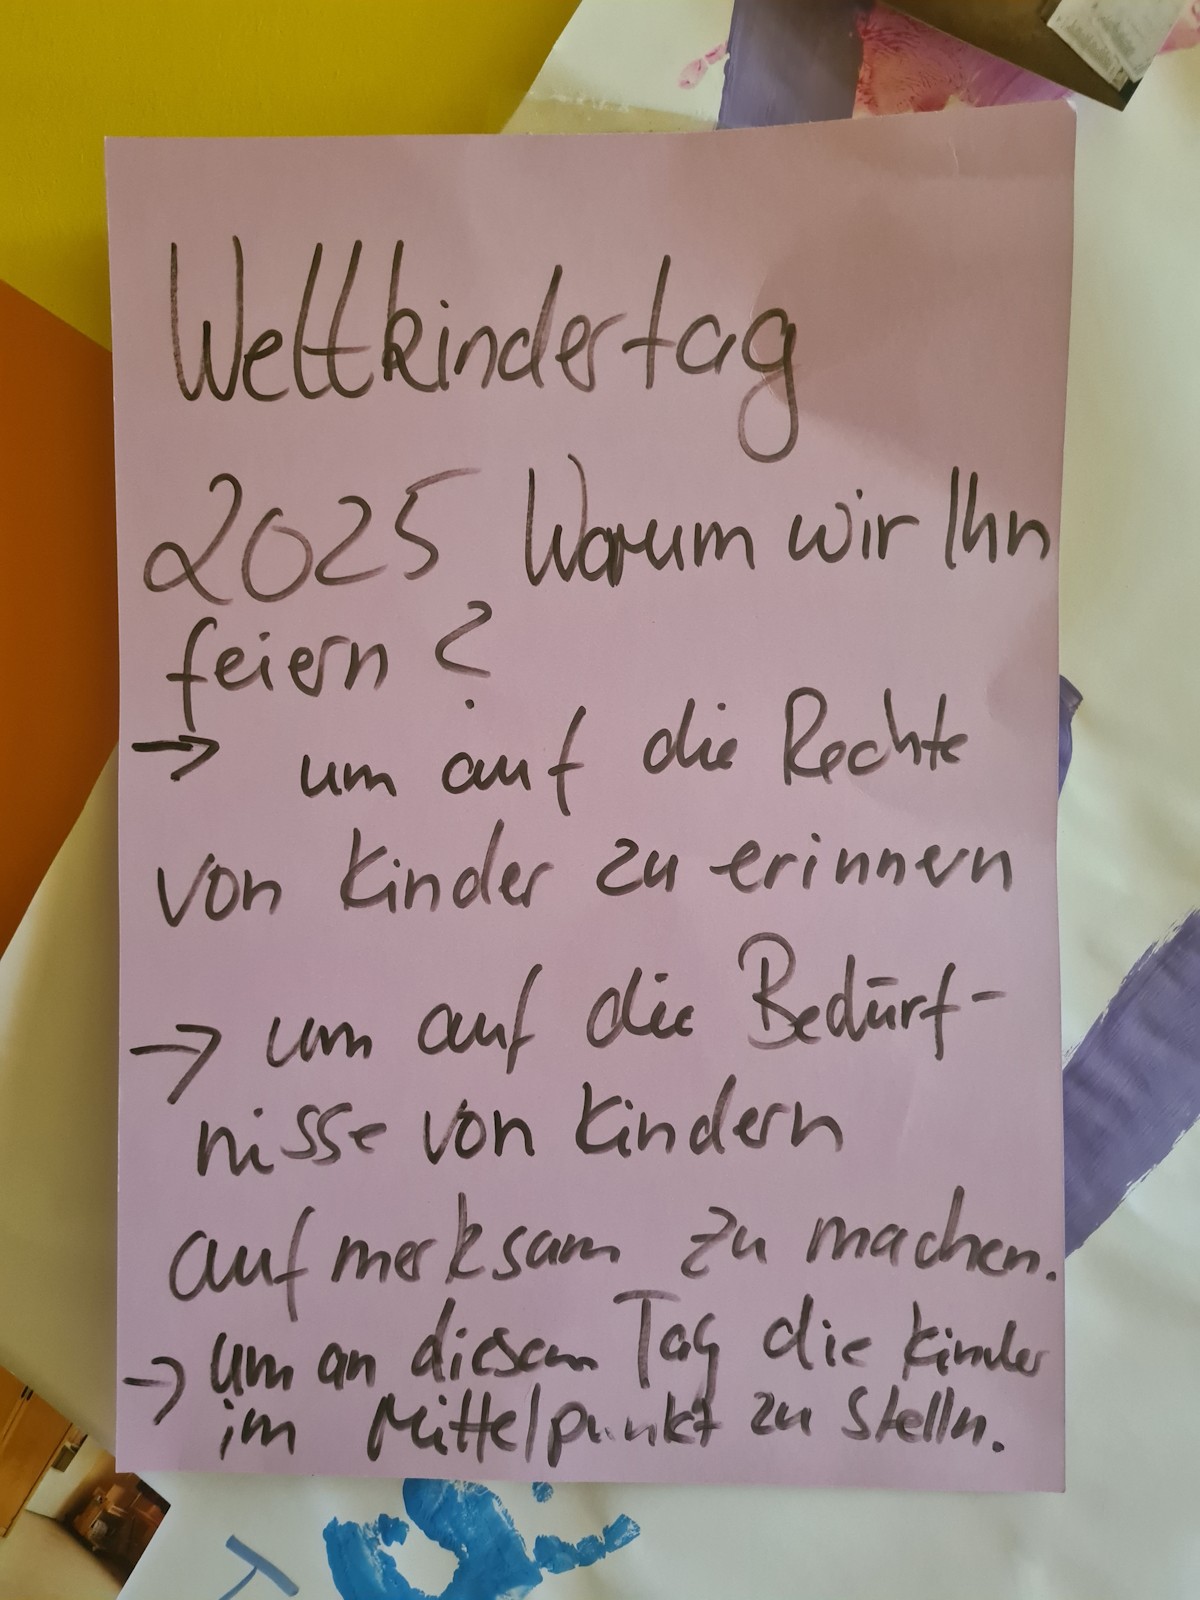 Weltkindertag
2025 Warum wir Ihn
feiern?
→ um auf die Rechte
von Kinder zu erinnern
→ um auf die Bedürf-
nisse von Kindern
aufmerksam zu machen.
→ um an diesem Tag die Kinder
im Mittelpunkt zu stelln.